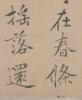 在春條
搖落還